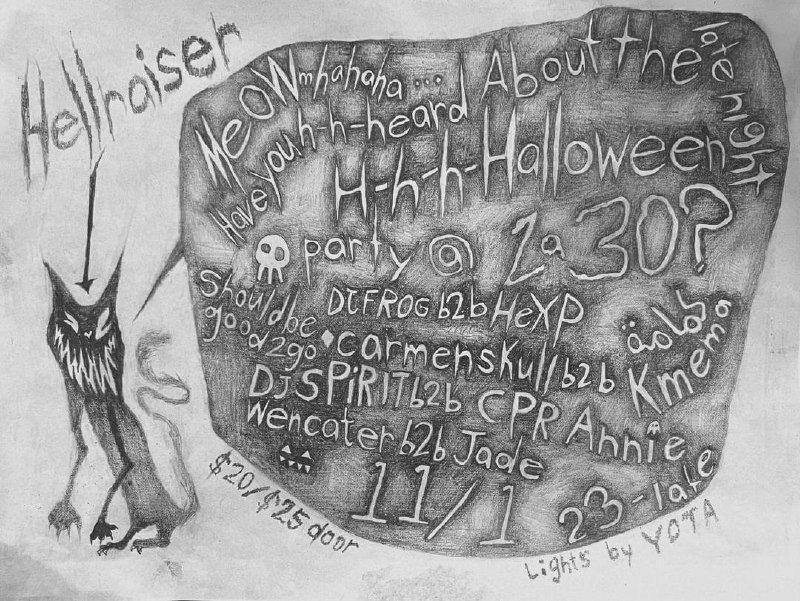 Hellraiser
MeOWmhahaha... About the late night
Have you h-h-heard
H-h-h-Halloween
party @ 2a30?
Should be good2go
DJ FROG b2b HeXP
carmenskull b2b Kmema
كمامة
DJ SPiRIT b2b CPR Annie
Wencater b2b Jade
11/1 23-late
$20/$25 door
Lights by YOTA